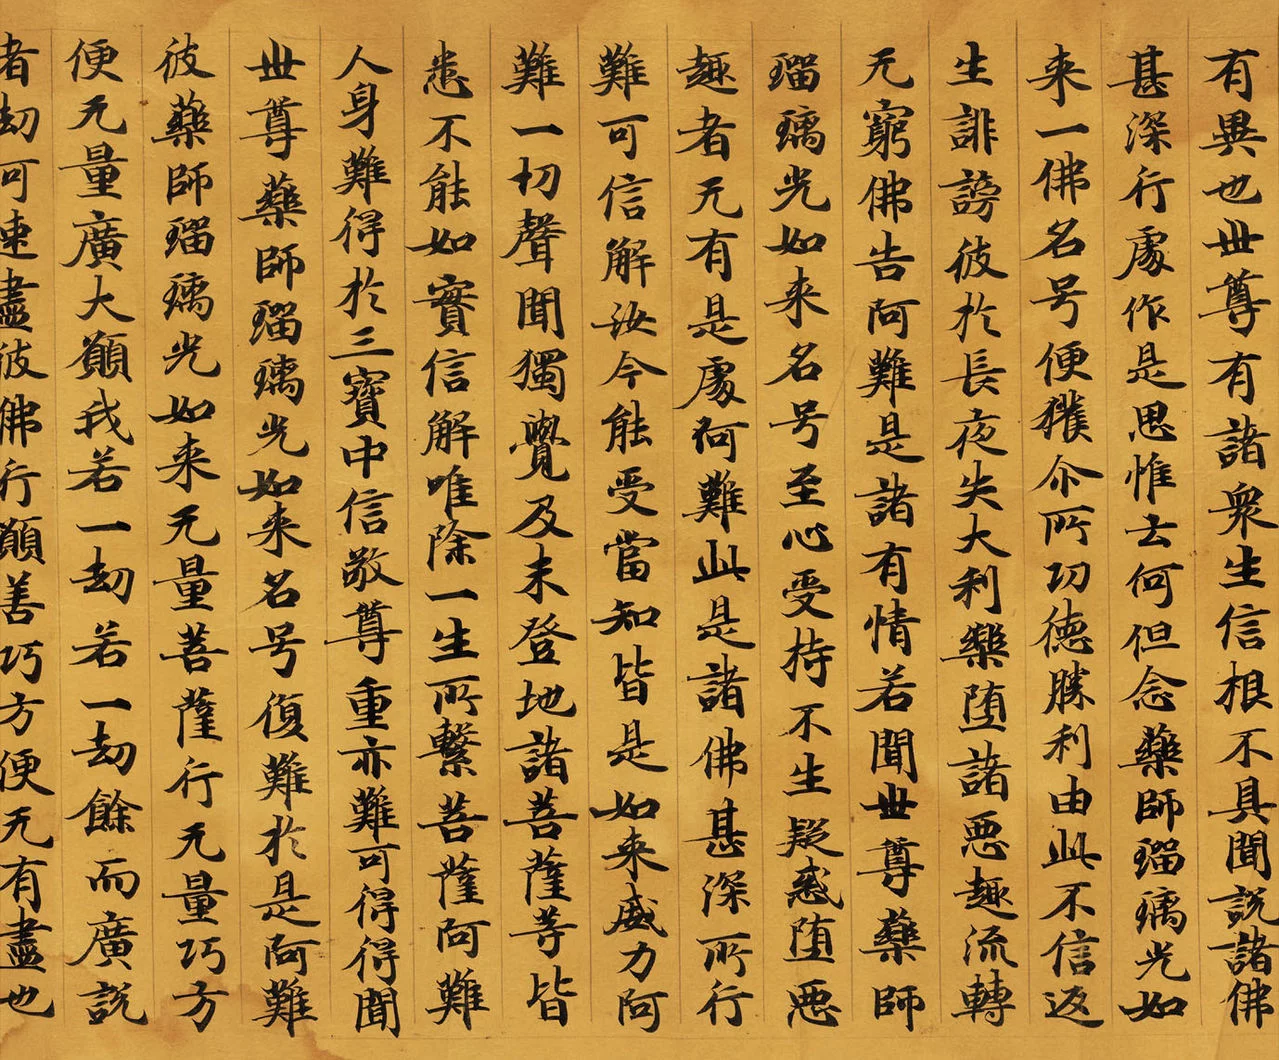 有異也世尊有諸衆生信根不具聞說諸佛
甚深行處作是思惟云何但念藥師瑠璃光如
来一佛名号便獲尒所功德勝利由此不信返
生誹謗彼於長夜失大利樂堕諸悪趣流轉
无窮佛告阿難是諸有情若聞世尊藥師
瑠璃光如来名号至心受持不生疑惑堕悪
趣者无有是處阿難此是諸佛甚深所行
難可信解汝今能受當知皆是如来威力阿
難一切聲聞獨覺及未登地諸菩薩等皆
悉不能如實信解唯除一生所繫菩薩阿難
人身難得於三寶中信敬尊重亦難可得得聞
世尊藥師瑠璃光如来名号復難於是阿難
彼藥師瑠璃光如来无量菩薩行无量巧方
便无量廣大願我若一劫若一劫餘而廣說
者劫可速盡彼佛行願善巧方便无有盡也